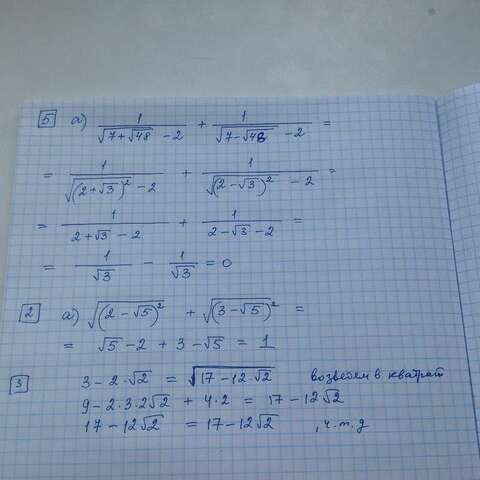 5 а) 1/(√(7+√48) -2) + 1/(√(7-√48) -2) =
= 1/(√((2+√3)²) -2) + 1/(√((2-√3)²) -2) =
= 1/(2+√3 -2) + 1/(2-√3 -2) =
= 1/√3 - 1/√3 = 0
2 а) √((2-√5)²) + √((3-√5)²) =
= √5 -2 + 3 -√5 = 1
3 3-2·√2 = √(17-12√2) возведем в кватрат
9-2·3·2√2 + 4·2 = 17-12√2
17-12√2 = 17-12√2 , ч.т.д